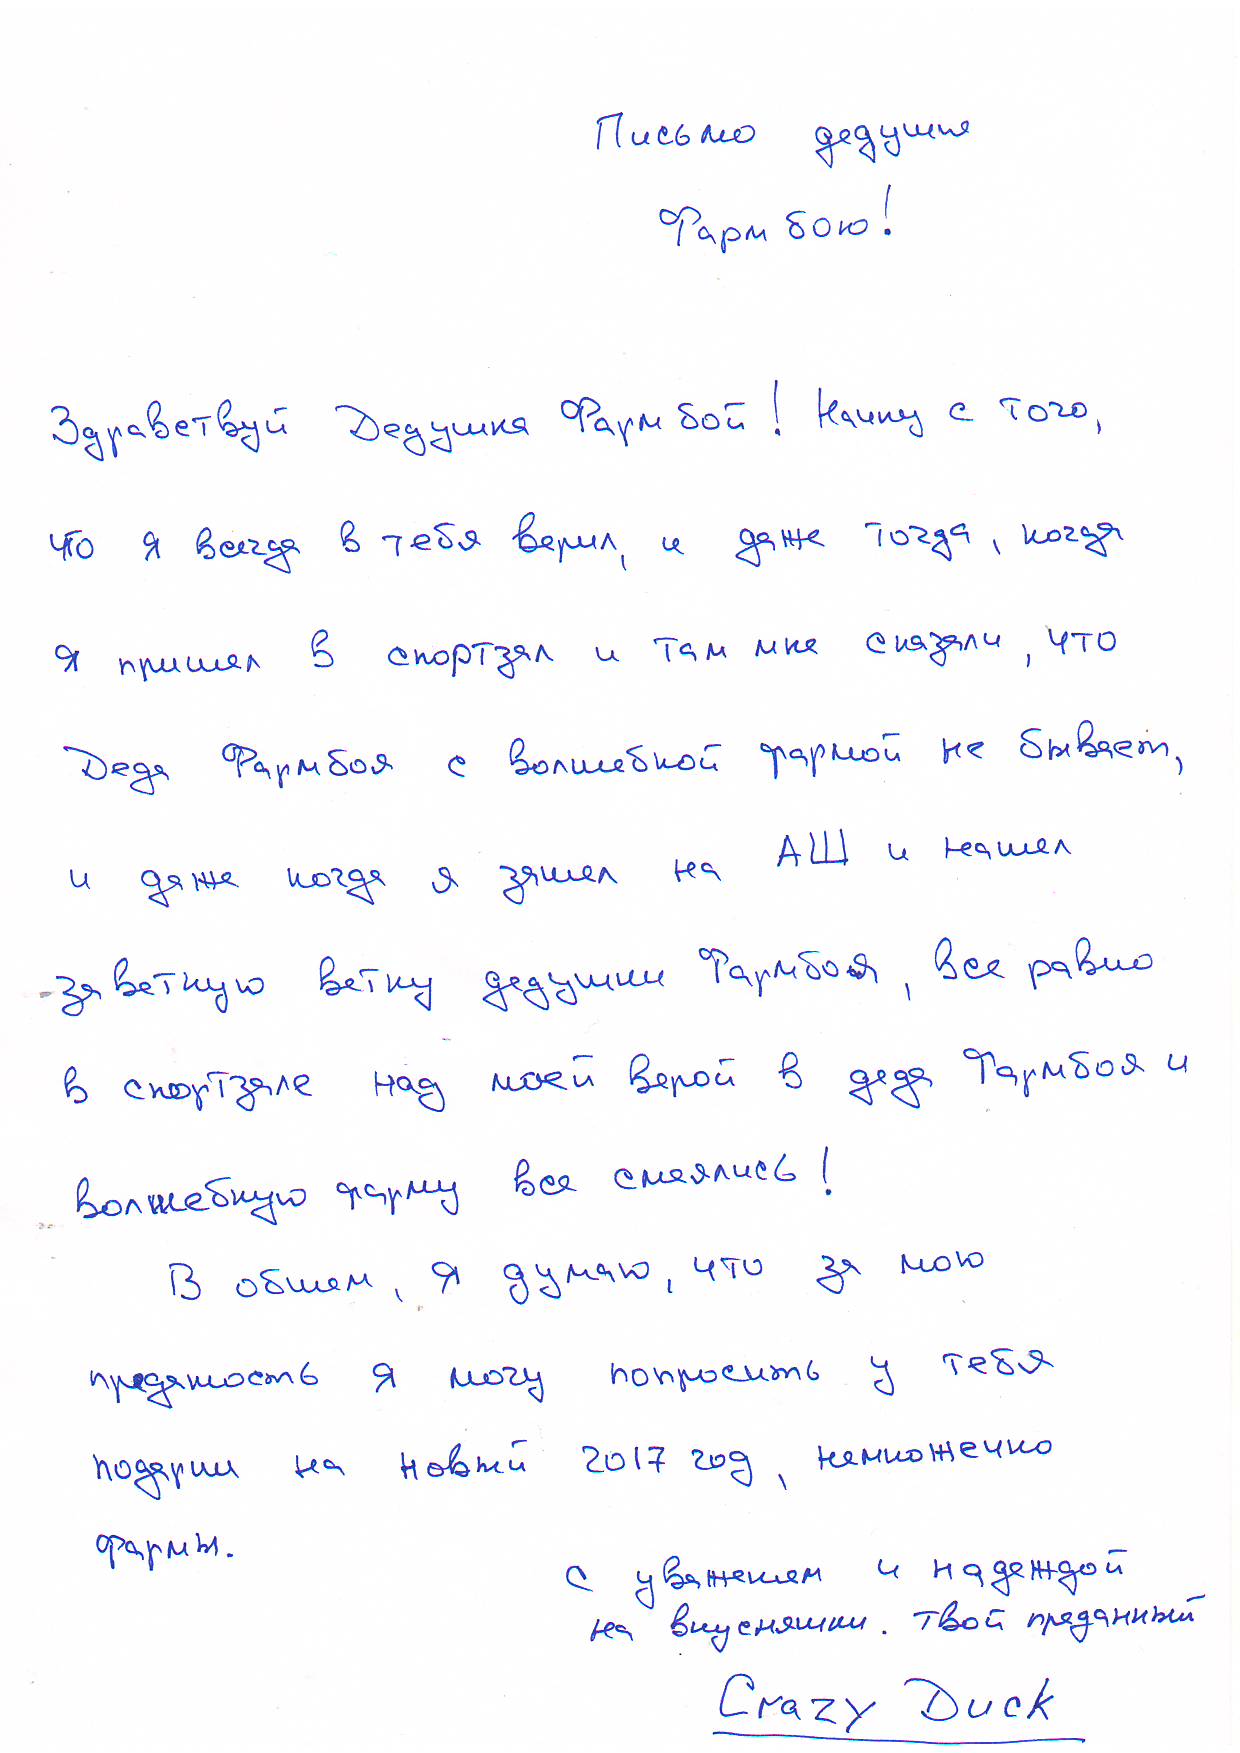 Письмо дедушке
Фармбою!
Здраветвуй Дедушка Фармбой! Начну с того,
что я всегда в тебя верил, и даже тогда, когда
я пришел в спортзал и там мне сказали, что
Деда Фармбоя с волшебной фармой не бывает,
и даже когда я зашел на АШ и нашел
заветную ветку дедушки Фармбоя, все равно
в спортзале над моей верой в деда Фармбоя и
волшебную фарму все смеялись!
В обшем, я думаю, что за мою
преданость я могу попросить у тебя
подарки на новый 2017 год, немножечко
фармы.
С уважением и надеждой
на вкусняшки. Твой преданный
Crazy Duck